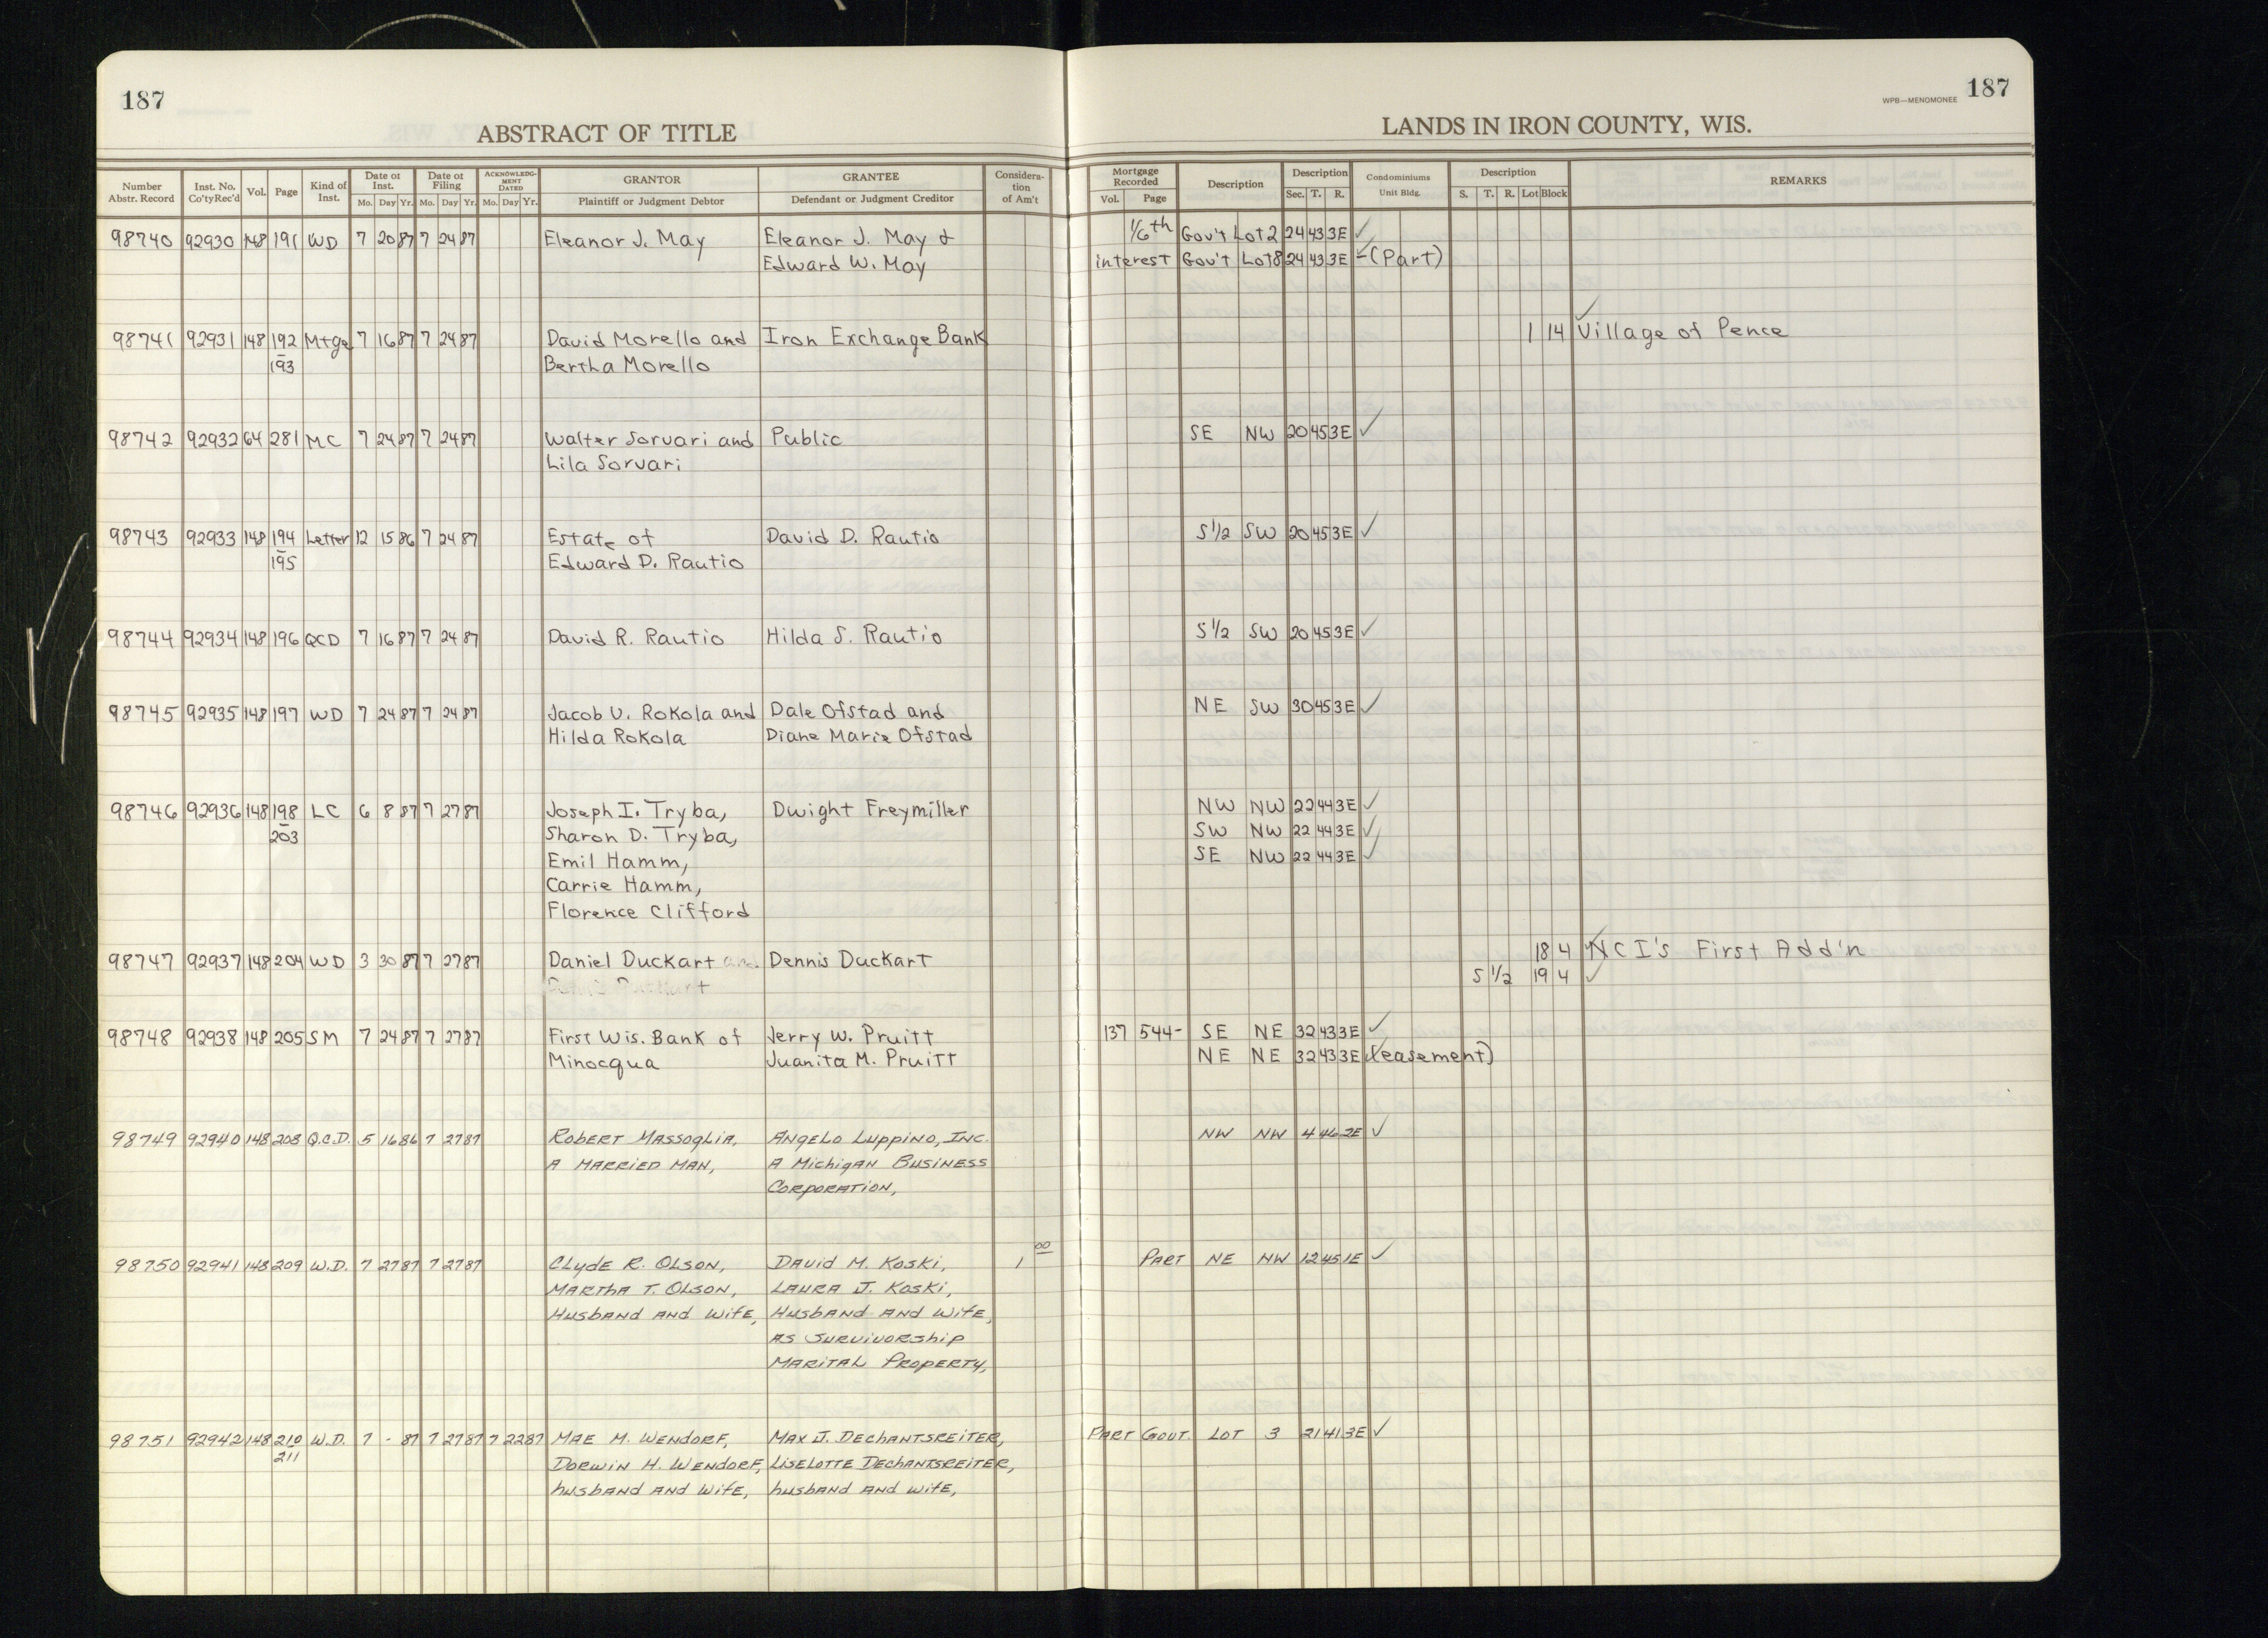 187
187
WPB—MENOMONEE
ABSTRACT OF TITLE
LANDS IN IRON COUNTY, WIS.
Number Abstr. Record Inst. No. Co'ty Rec'd Vol. Page Kind of Inst. Date of Inst. Mo. Day Yr. Date of Filing Mo. Day Yr. ACKNOWLEDGMENT DATED Mo. Day Yr. GRANTOR Plaintiff or Judgment Debtor GRANTEE Defendant or Judgment Creditor Consideration of Am't Mortgage Recorded Vol. Page Description Description Sec. T. R. Condominiums Unit Bldg. Description S. T. R. Lot Block REMARKS
98740 92930 148 191 WD 7 20 87 7 24 87 Eleanor J. May Eleanor J. May & 1/6th Gov't Lot 2 24 43 3E ✓
Edward W. May interest Gov't Lot 8 24 43 3E ✓ (Part)
98741 92931 148 192 Mtge 7 16 87 7 24 87 David Morello and Iron Exchange Bank 1 14 ✓ Village of Pence
193 Bertha Morello
98742 92932 64 281 MC 7 24 87 7 24 87 Walter Sorvari and Public SE NW 20 45 3E ✓
Lila Sorvari
98743 92933 148 194 Letter 12 15 86 7 24 87 Estate of David D. Rautio S 1/2 SW 20 45 3E ✓
195 Edward D. Rautio
98744 92934 148 196 QCD 7 16 87 7 24 87 David R. Rautio Hilda S. Rautio S 1/2 SW 20 45 3E ✓
98745 92935 148 197 WD 7 24 87 7 24 87 Jacob V. Rokola and Dale Ofstad and NE SW 30 45 3E ✓
Hilda Rokola Diane Marie Ofstad
98746 92936 148 198 LC 6 8 87 7 27 87 Joseph I. Tryba, Dwight Freymiller NW NW 22 44 3E ✓
203 Sharon D. Tryba, SW NW 22 44 3E ✓
Emil Hamm, SE NW 22 44 3E ✓
Carrie Hamm,
Florence Clifford
98747 92937 148 204 WD 3 30 87 7 27 87 Daniel Duckart Dennis Duckart 18 4 ✓ NCI's First Add'n
S 1/2 19 4 ✓
98748 92938 148 205 SM 7 24 87 7 27 87 First Wis. Bank of Jerry W. Pruitt 137 544- SE NE 32 43 3E ✓
Minocqua Juanita M. Pruitt NE NE 32 43 3E ✓ (easement)
98749 92940 148 208 Q.C.D. 5 16 86 7 27 87 Robert Massoglia, Angelo Luppino, Inc. NW NW 4 46 2E ✓
A MARRIED MAN, A Michigan Business
Corporation,
98750 92941 148 209 W.D. 7 27 87 7 27 87 Clyde R. Olson, David M. Koski, 1 00 PART NE NW 12 45 1E ✓
Martha T. Olson, Laura J. Koski,
Husband and Wife, Husband and Wife,
as Survivorship
Marital Property,
98751 92942 148 210 W.D. 7 - 87 7 27 87 7 22 87 Mae M. Wendorf, Max J. Dechantsreiter, PART GOVT. LOT 3 21 41 3E ✓
211 Dorwin H. Wendorf, Liselotte Dechantsreiter,
husband and wife, husband and wife,